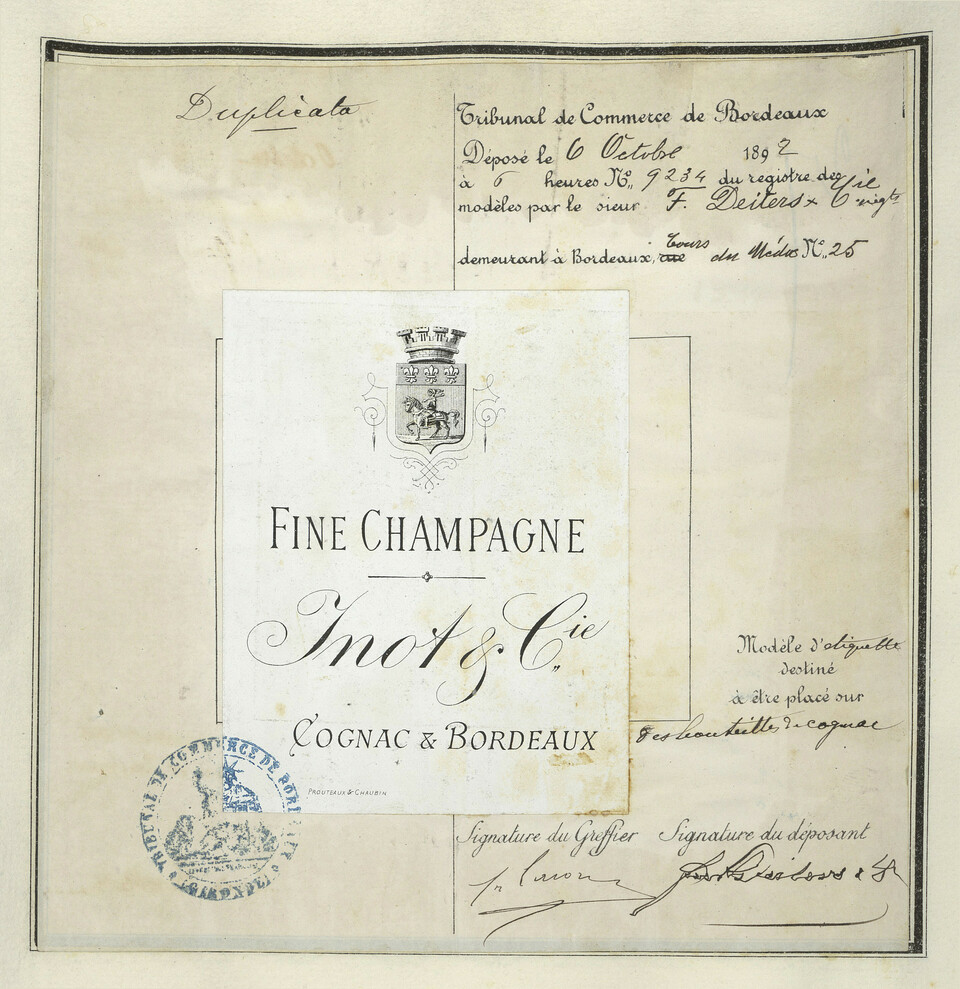 Duplicata
Tribunal de Commerce de Bordeaux
Déposé le 6 Octobre 1892
à 6 heures N° 9234 du registre des
modèles par le sieur F. Deiters & Cie négts
demeurant à Bordeaux, rue Cours du Médoc N° 25
FINE CHAMPAGNE
Inot & Cie
COGNAC & BORDEAUX
PROUTEAUX & CHAUBIN
Modèle d'étiquette
destiné
à être placé sur
des bouteilles de cognac
TRIBUNAL DE COMMERCE DE BORDEAUX
(GIRONDE)
Signature du Greffier Signature du déposant